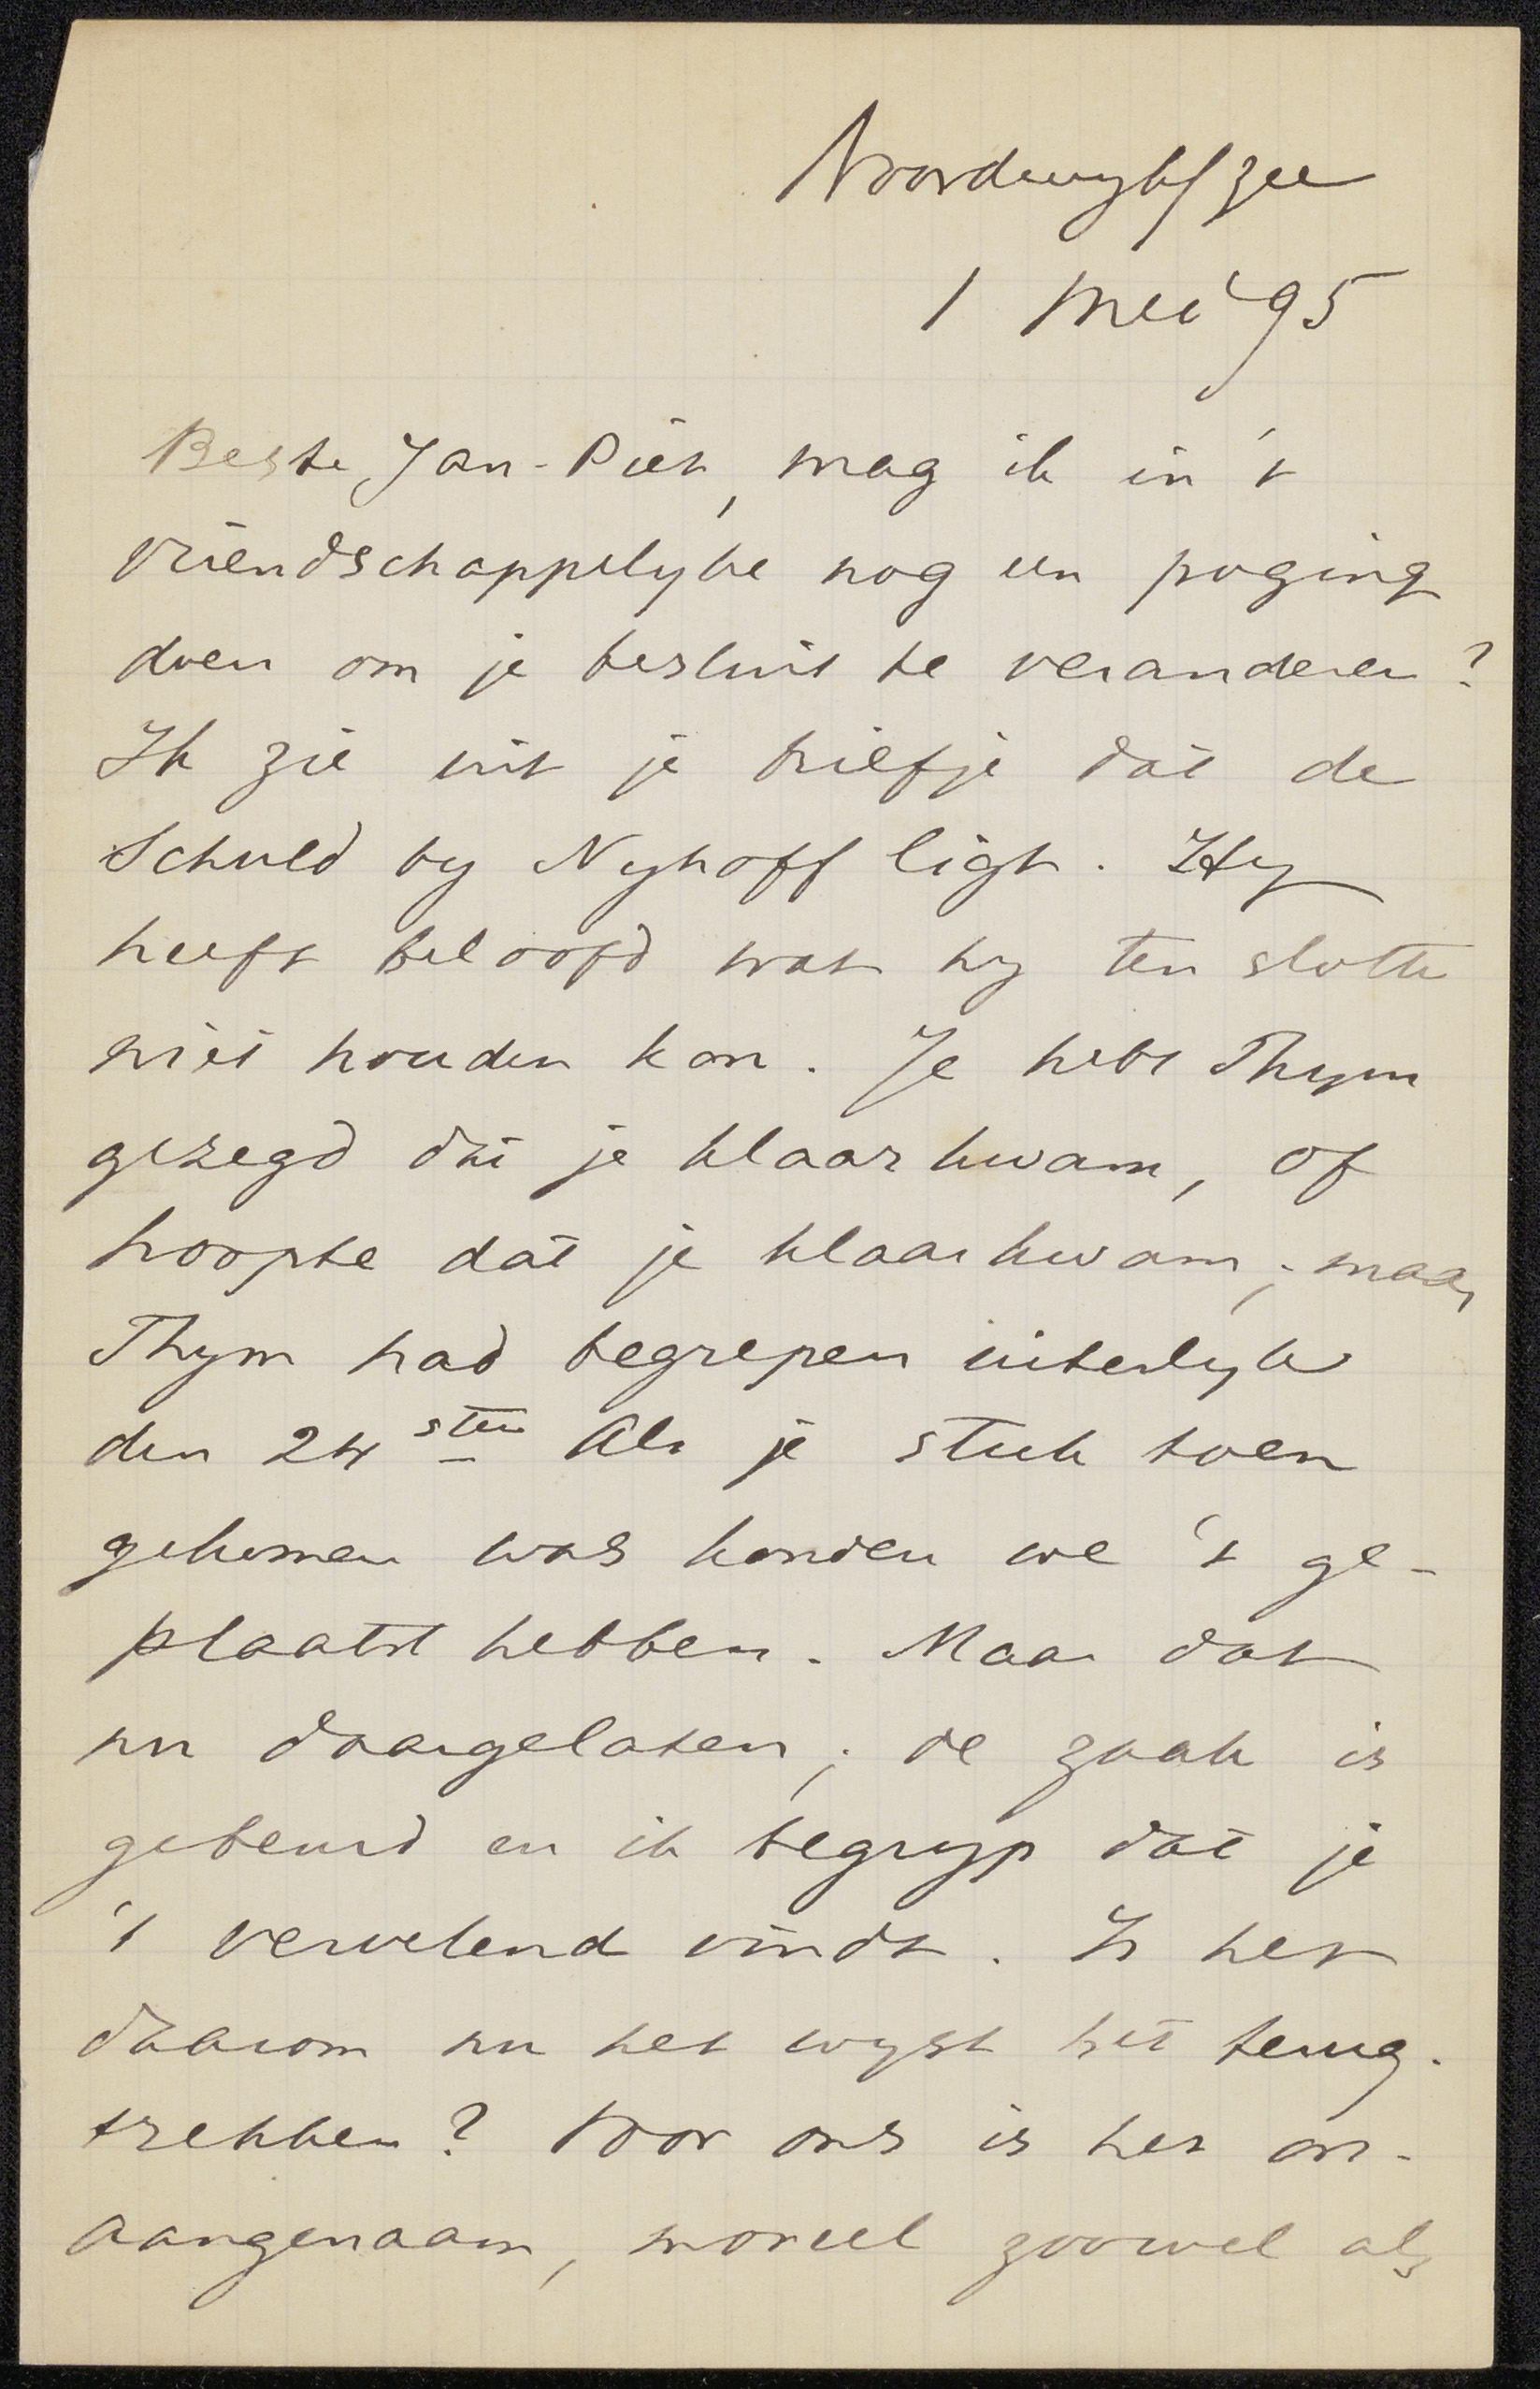 Noordwyk a/zee
1 Mei '95
Beste Jan-Piet, mag ik in 't
vriendschappelyke nog een poging
doen om je besluit te veranderen?
Ik zie uit je briefje dat de
schuld by Nyhoff ligt. Hy
heeft beloofd wat hy ten slotte
niet houden kon. Je hebt Thym
gezegd dat je klaar kwam, of
hoopte dat je klaar kwam; maar
Thym had begrepen uiterlyk
den 24sten Als je stuk toen
gekomen was konden we 't ge-
plaatst hebben. Maar dat
nu daargelaten; de zaak is
gebeurd en ik begryp dat je
't vervelend vindt. Is het
daarom nu het wyst het terug-
trekken? Voor ons is het on-
aangenaam, moreel zoowel als